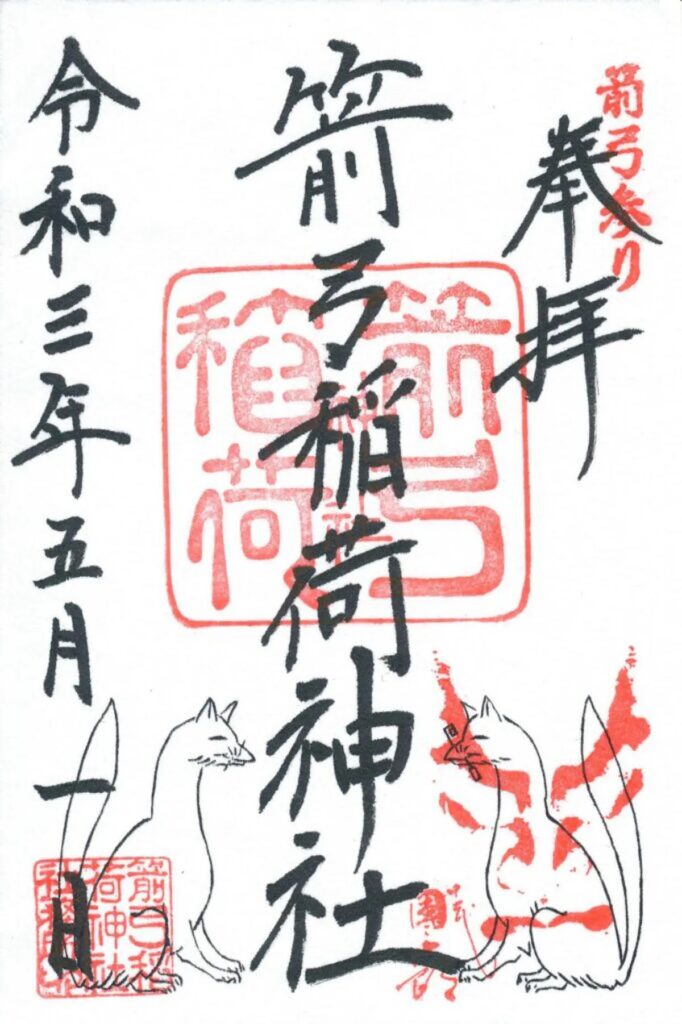 箭弓参り
奉拝
箭弓稲荷神社
箭弓稲荷
神社
令和三年五月一日